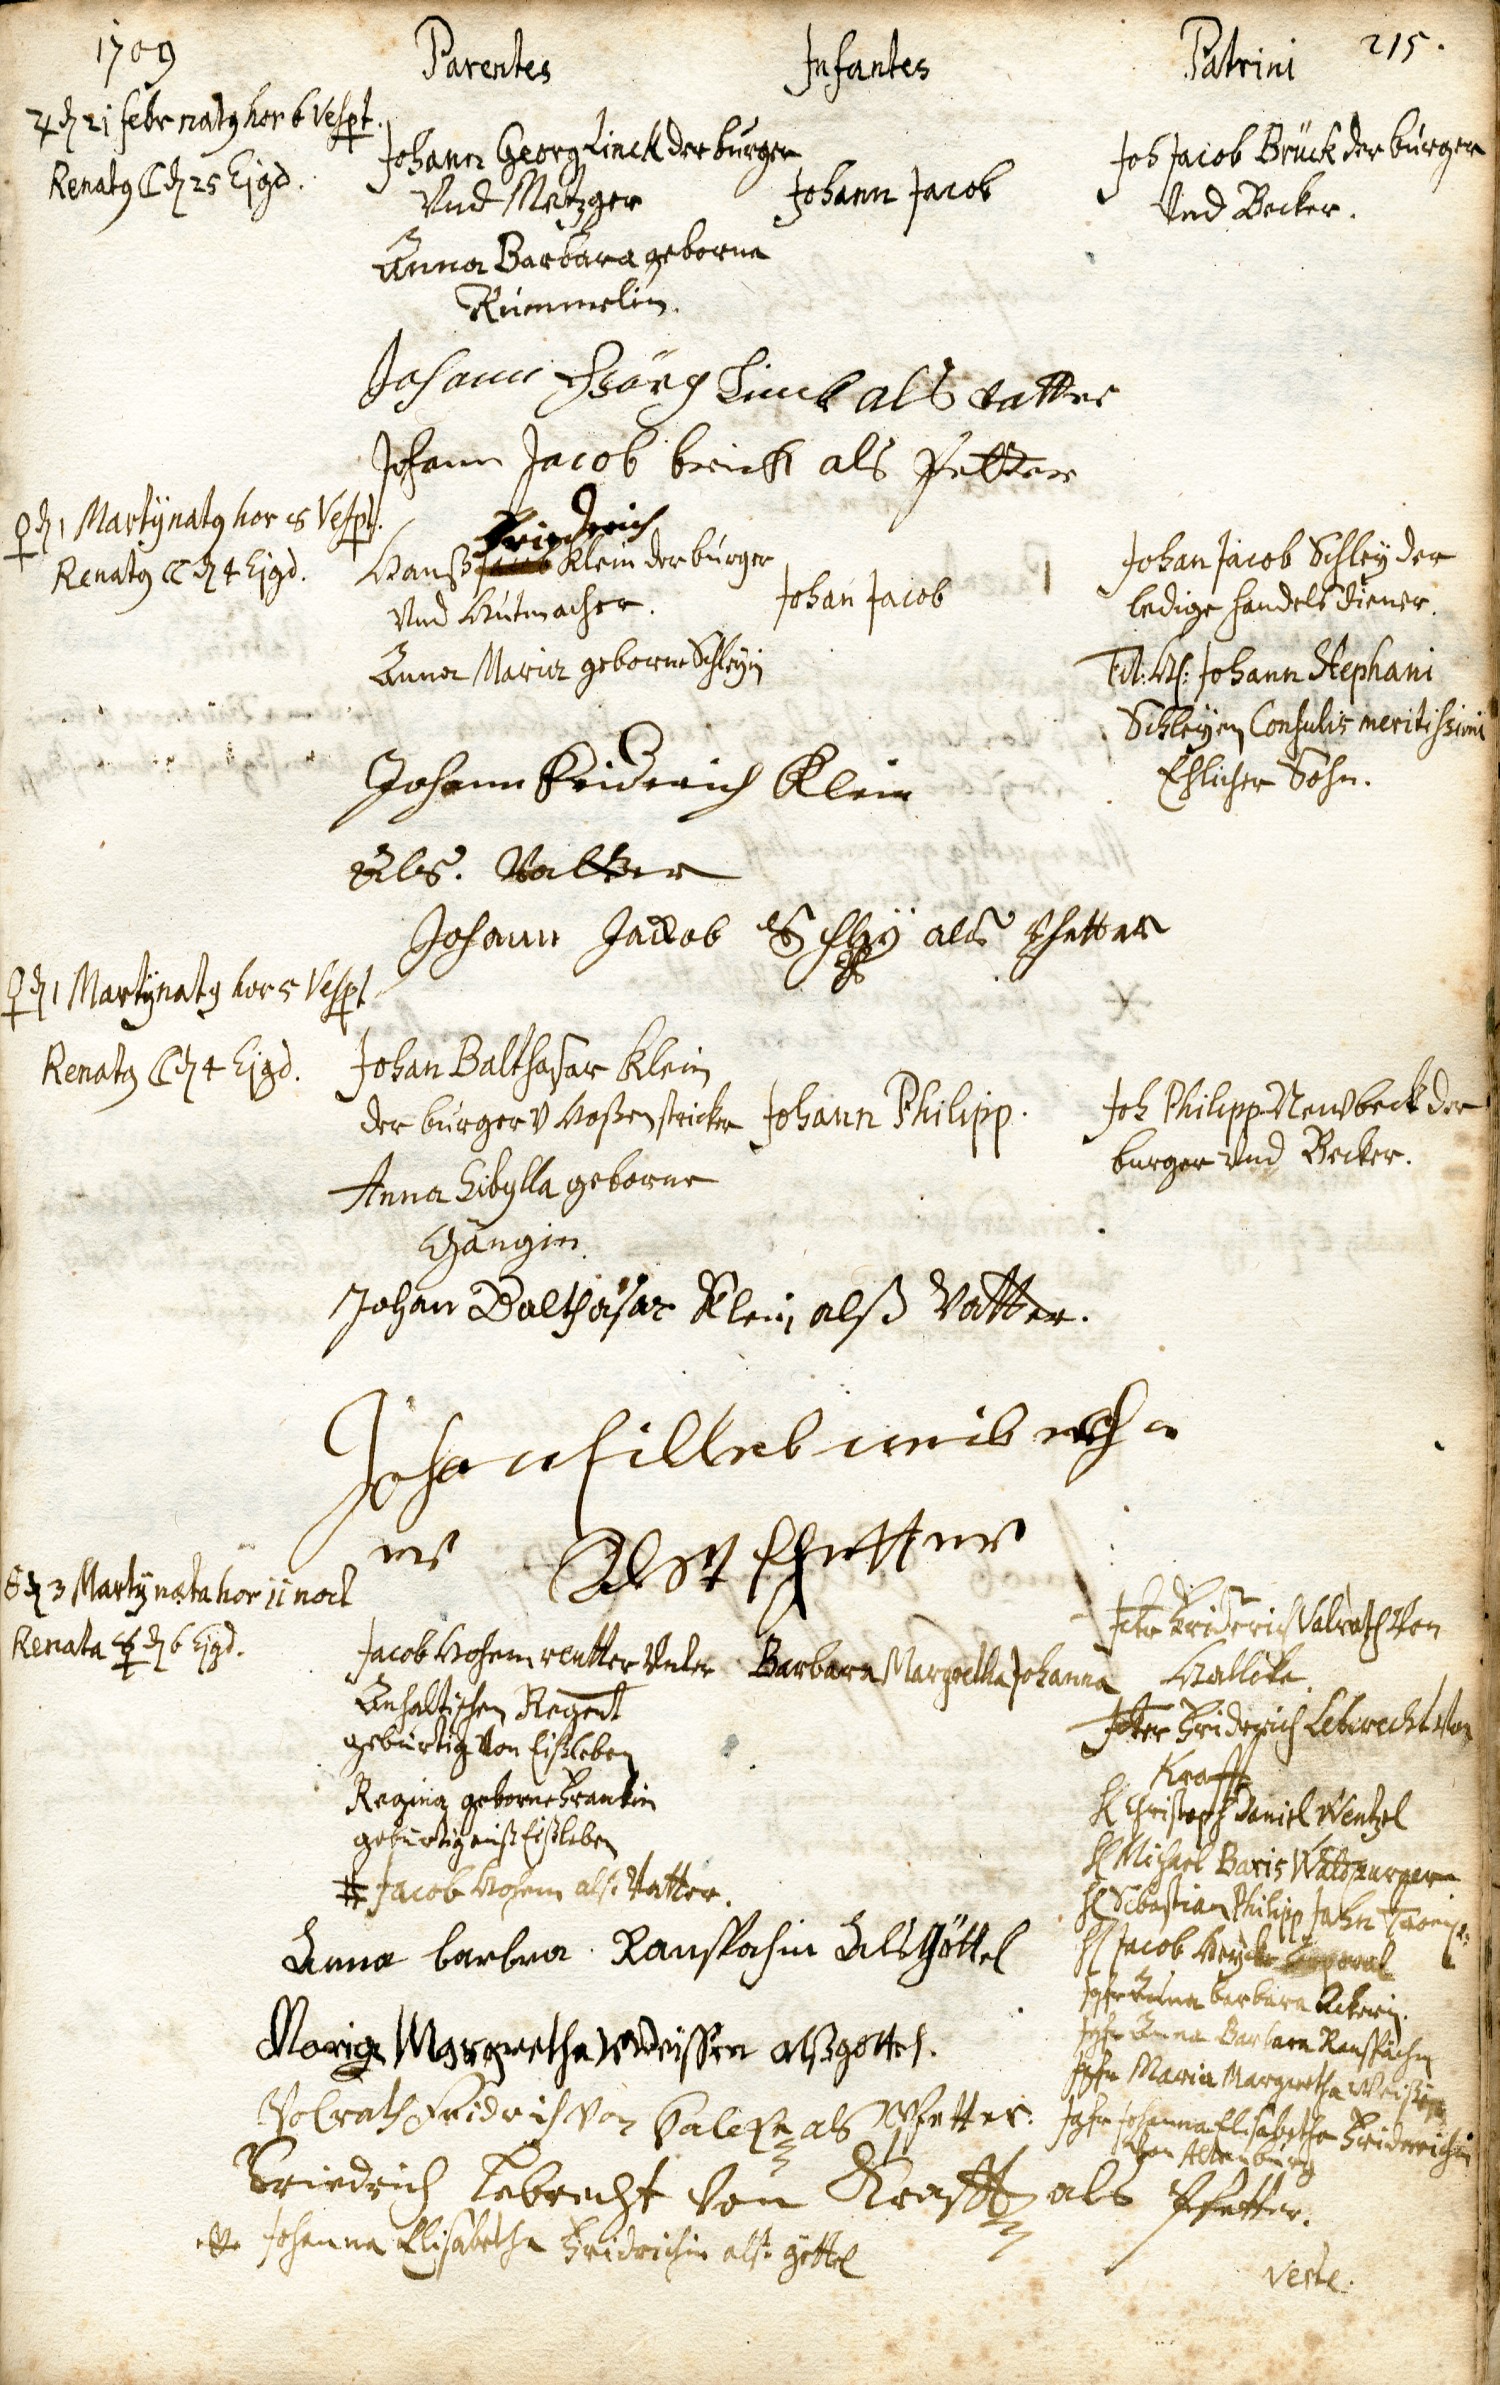 1709
Parentes
Infantes
Patrini
215.
♃ d 21 febr natq hor 6 Vespt.
Renatq ☾ d 25 Ejgd.
Johann Georg Linck der burger
Vnd Metzger
Anna Barbara geborne
Kümmelin.
Johann Jacob
Joh Jacob Brück der burger
Vnd Becker.
Johann Görg Linck als vatter
Johann Jacob brück als Petter
♀ d 1 Martÿ natq hor 5 Vespt.
Renatq ☾ d 4 Ejgd.
Friederich
Hanß Jacob Klein der burger
Vnd Hutmacher.
Anna Maria geborne Schleyin
Johan Jacob
Johan Jacob Schleÿ der
ledige handels diener.
Tit: Johann Stephani
Schleÿen Consulis meritissimi
Ehlicher Sohn.
Johann Friderich Klein
Als. Vatter
Johann Jacob Schlÿ als Pfetter
♀ d 1 Martÿ natq hor 5 Vespt
Renatq ☾ d 4 Ejgd.
Johan Balthasar Klein
der burger V Hoßenstricker
Anna Sibylla geborne
Gängin.
Johann Philipp.
Joh Philipp Newbeck der
burger Vnd Becker.
Johan Balthasar Klein alß Vatter.
Johan
Alst Pfetter
d 3 Martÿ nata hor 11 noct
Renata d 6 Ejgd.
Jacob Hohem Vnter
Anhaltischen Regent
gebürtig von Eißleben
Regina geborne Franckin
gebürtig auß Eißleben
Barbara Margretha Johanna
Friderich Valrath Von
Hallcke.
Friderich Lebrecht Von
Krafft
H Christoph Daniel Wentzel
H Michael Baris
H Sebastian Philipp Jahn
H Jacob Corporal
Jgfr Anna Barbara Ackerin.
Jgfr Anna Barbara Ranspachin
Jgfr Maria Margretha Weißin
Jgfr Johanna Elisabetha Friderichin
von Altenburg
# Jacob Hohem als Vatter.
Anna barbra Ranspachin Als Göttel
Maria Margretha Weissen alß gottel.
Volrath Fridrich von Halcke als Pfetter.
Friedrich Lebrecht von Krafft als Pfetter.
Johanna Elisabetha Fridrichin alß göttel
verte.